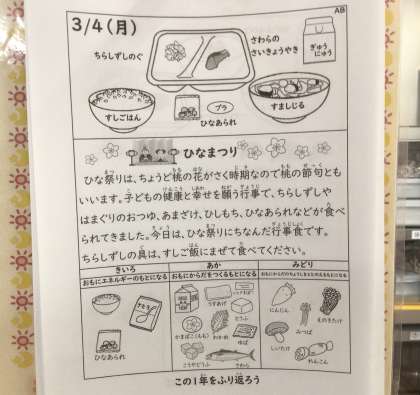 3/4(月)
AB
ちらしずしのぐ
さわらの
さいきょうやき
ぎゅう
にゅう
すしごはん
プラ
ひなあられ
すましじる
ひなまつり
ひな祭りは、ちょうど桃の花がさく時期なので桃の節句とも
いいます。子どもの健康と幸せを願う行事で、ちらしずしや
はまぐりのおつゆ、あまざけ、ひしもち、ひなあられなどが食べ
られてきました。今日は、ひな祭りにちなんだ行事食です。
ちらしずしの具は、すしご飯にまぜて食べてください。
きいろ
あか
みどり
おもにエネルギーのもとになる
おもにからだをつくるもとになる
おもにからだのちょうしをととのえるもとになる
ひなあられ
うすあげ
とうふ
かまぼこ(もも)
わかめ
ゆば
こうやどうふ
さわら
にんじん
みつば
えのきたけ
しいたけ
れんこん
この1年をふり返ろう